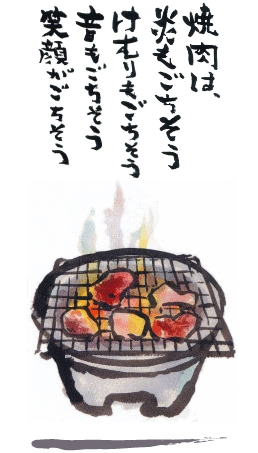 焼肉は、
炎もごちそう
けむりもごちそう
音もごちそう
笑顔がごちそう